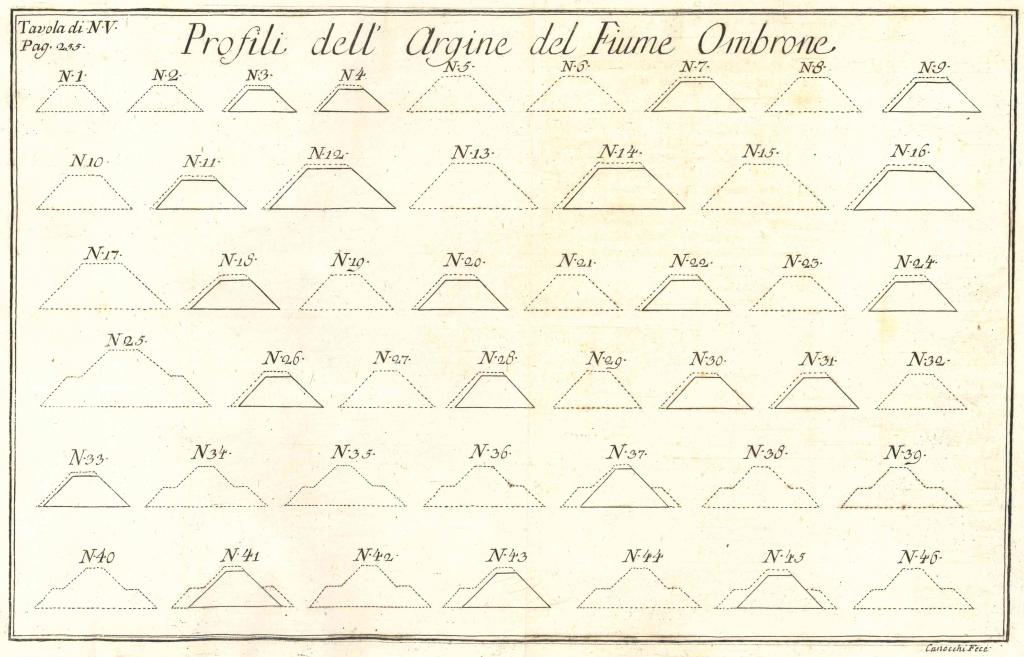 Tavola di N·V·
Pag. 255·
Profili dell' Argine del Fiume Ombrone
N·1 N·2· N·3· N·4 N·5· N·6· N·7· N·8· N·9·
N·10 N·11· N·12· N·13· N·14· N·15· N·16·
N·17· N·18· N·19· N·20· N·21· N·22· N·23· N·24·
N·25· N·26· N·27· N·28· N·29· N·30· N·31· N·32·
N·33· N·34· N·35· N·36· N·37· N·38· N·39·
N·40 N·41· N·42· N·43 N·44 N·45· N·46·
Canocchi Fece·